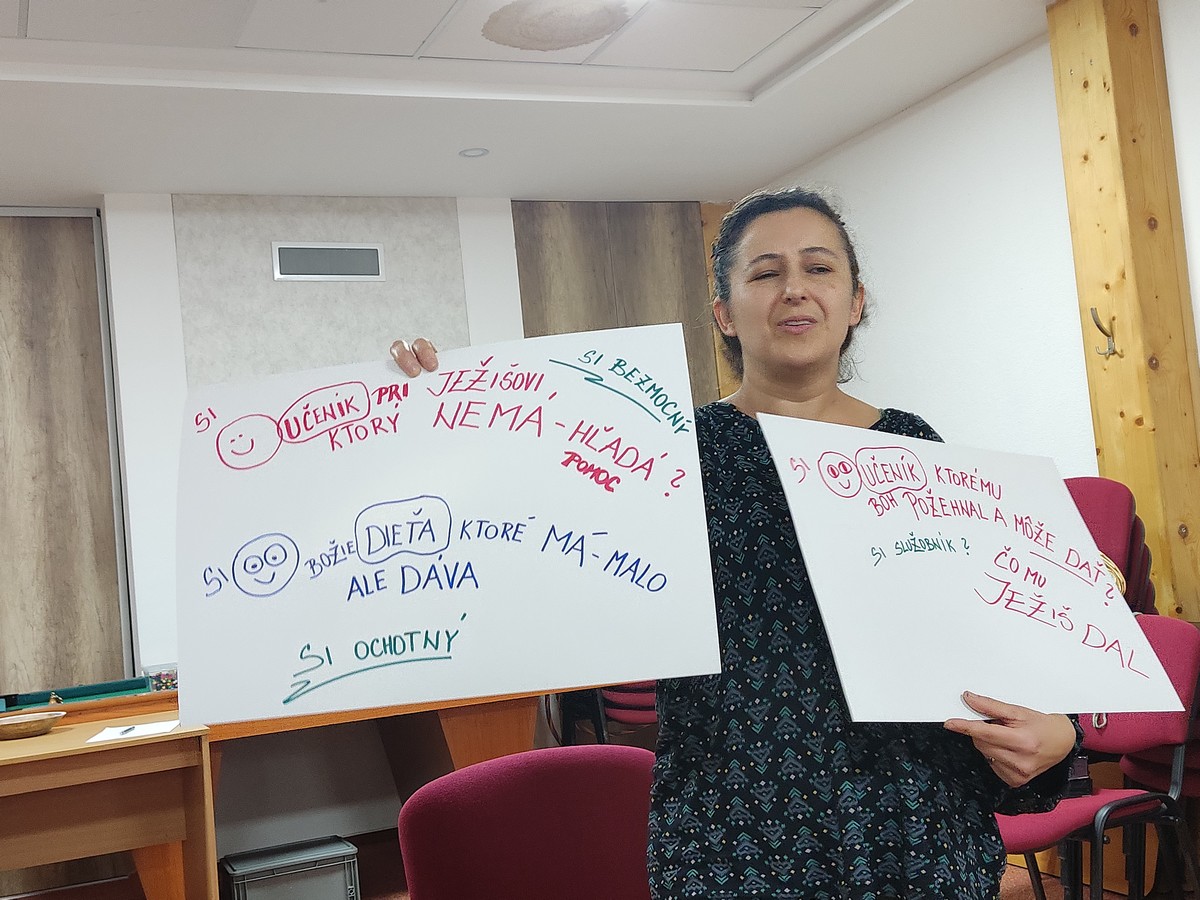 SI UČENÍK PRI JEŽIŠOVI
KTORÝ NEMÁ - HĽADÁ?
POMOC
SI BEZMOCNÝ
SI BOŽIE DIEŤA KTORÉ MÁ - MALO
ALE DÁVA
SI OCHOTNÝ
SI UČENÍK KTORÉMU
BOH POŽEHNAL A MÔŽE DAŤ?
SI SLUŽOBNÍK?
ČO MU
JEŽIŠ DAL